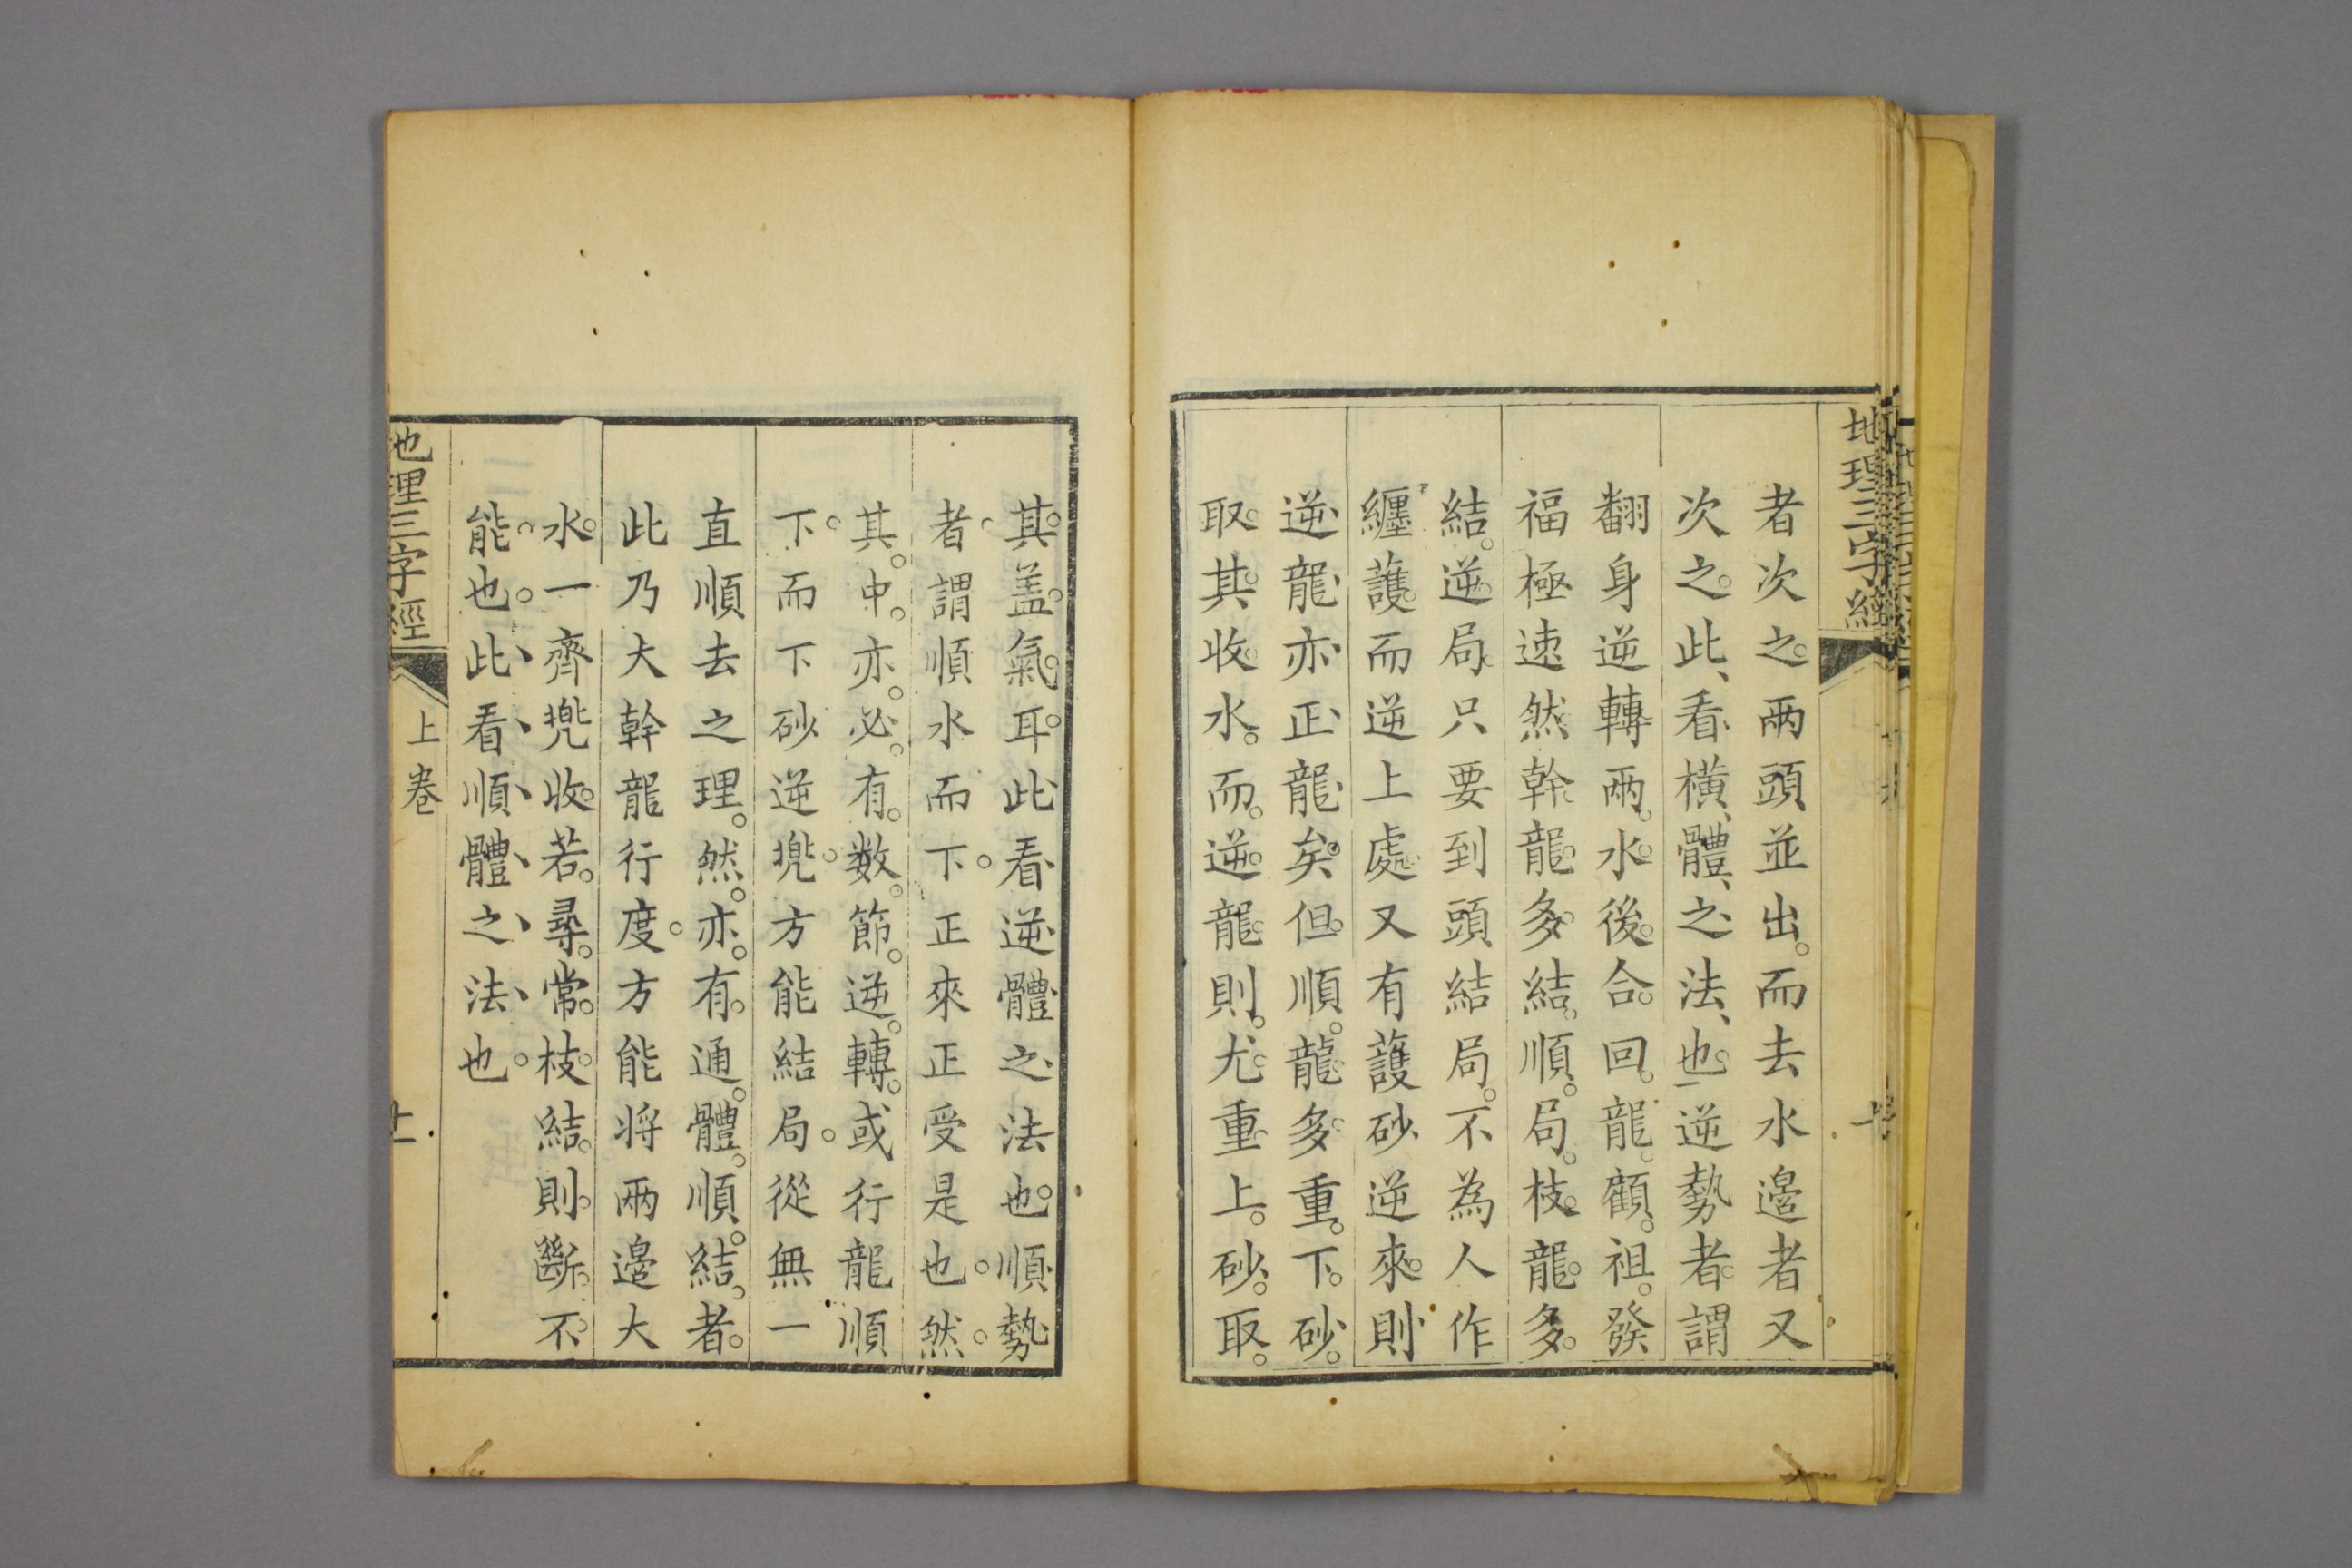 地理三字經
者次之兩頭並出而去水邊者又
次之此看橫體之法也逆勢者謂
翻身逆轉兩水後合回龍顧祖發
福極速然幹龍多結順局枝龍多
結逆局只要到頭結局不為人作
纏護而逆上處又有護砂逆來則
逆龍亦正龍矣但順龍多重下砂
取其收水而逆龍則尤重上砂取
其盖氣耳此看逆體之法也順勢
者謂順水而下正來正受是也然
其中亦必有数節逆轉或行龍順
下而下砂逆兠方能結局從無一
直順去之理然亦有通體順結者
此乃大幹龍行度方能将兩邊大
水一齊兠收若尋常枝結則斷不
能也此看順體之法也
地理三字經
上卷